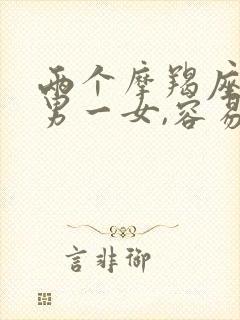 两个摩羯座
男一女,容易
言非御